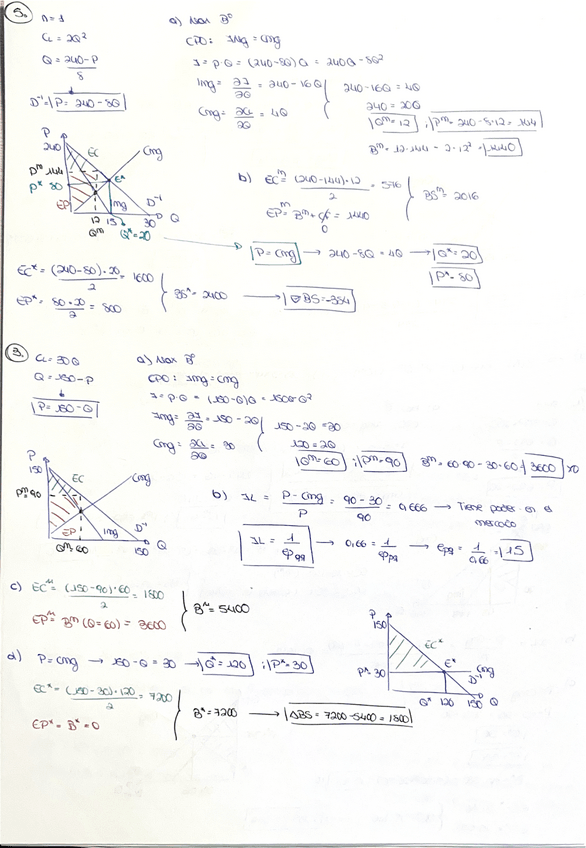 5.
n = 1
CT = 2Q²
Q = 240-P / 8
D⁻¹ = P = 240 - 8Q
a) Max Bº
CPO: IMg = Cmg
I = P·Q = (240-8Q)Q = 240Q - 8Q²
Img = ∂I/∂Q = 240 - 16Q
Cmg = ∂CT/∂Q = 4Q
240 - 16Q = 4Q
240 = 20Q
Qᵐ = 12 ; Pᵐ = 240 - 8·12 = 144
Bᵐ = 12·144 - 2·12² = 1440
P
240
EC
Cmg
Pᵐ 144
E*
P* 80
EP
Img
D⁻¹
Q
12 15 30
Qᵐ Q*=20
b) ECᵐ = (240-144)·12 / 2 = 576
EPᵐ = Bᵐ + CF = 1440
0
BSᵐ = 2016
P = Cmg → 240 - 8Q = 4Q → Q* = 20
P* = 80
EC* = (240-80)·20 / 2 = 1600
EP* = 80·20 / 2 = 800
BS* = 2400 → BS = -384
3.
CT = 30Q
Q = 150 - P
P = 150 - Q
a) Max Bº
CPO: Img = Cmg
I = P·Q = (150-Q)Q = 150Q - Q²
Img = ∂I/∂Q = 150 - 2Q
Cmg = ∂CT/∂Q = 30
150 - 2Q = 30
120 = 2Q
Qᵐ = 60 ; Pᵐ = 90 Bᵐ = 60·90 - 30·60 = 3600 > 0
P
150
EC
Cmg
Pᵐ = 90
EP
Img
D⁻¹
Q
Qᵐ = 60 150
b) IL = P - Cmg / P = 90 - 30 / 90 = 0,666 → Tiene poder en el
mercado
IL = 1 / → 0,66 = 1 / → = 1 / 0,66 = 1,5
c) ECᴹ = (150-90)·60 / 2 = 1800
EPᴹ = Bᵐ (Q=60) = 3600
Bᴹ = 5400
d) P = Cmg → 150 - Q = 30 → Q* = 120 ; P* = 30
EC* = (150-30)·120 / 2 = 7200
EP* = B* = 0
B* = 7200 → ΔBS = 7200 - 5400 = 1800
P
150
EC*
E*
P* 30
Cmg
D⁻¹
Q* 120 150 Q